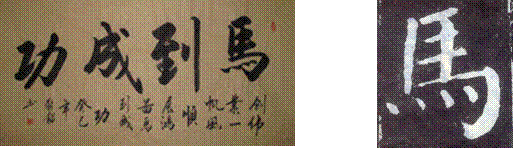 馬到成功
創偉
業一
帆風
順
展鴻
馬
到成
功
癸巳
年
馬